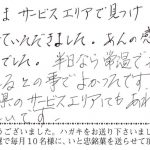 ま サービスエリアで見つけ
ていただきました。あんの
でした。半日なら常温で
るとの事でよかったです
県のサービスエリアにもあれ
いいです
うございました。ハガキをお送り下さいまし
で毎月10名様に、いと忠銘菓を送らせて頂